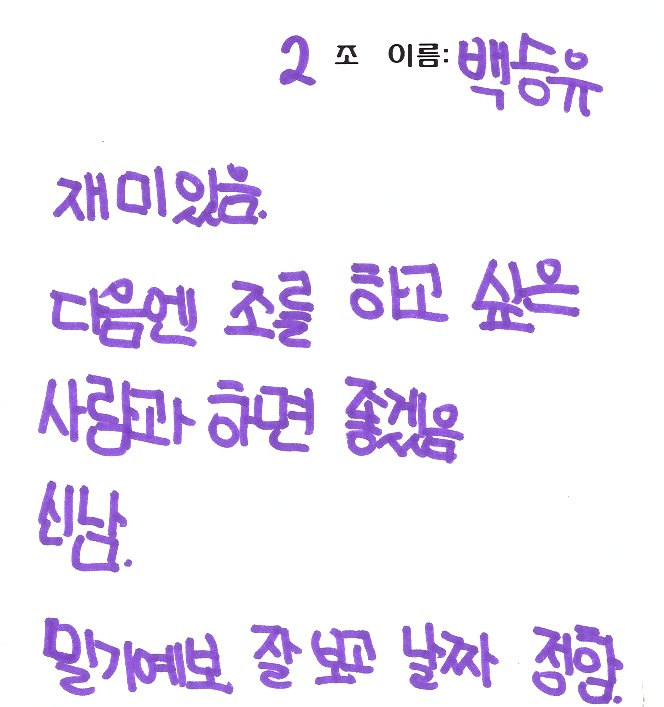 2 조 이름: 백승유
재미있음.
다음엔 조를 하고 싶은
사람과 하면 좋겠음
신남.
일기예보 잘 보고 날짜 정함.